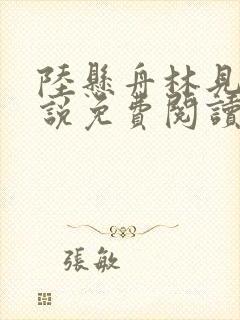 陸懸舟林見
說免費閱讀
張敏